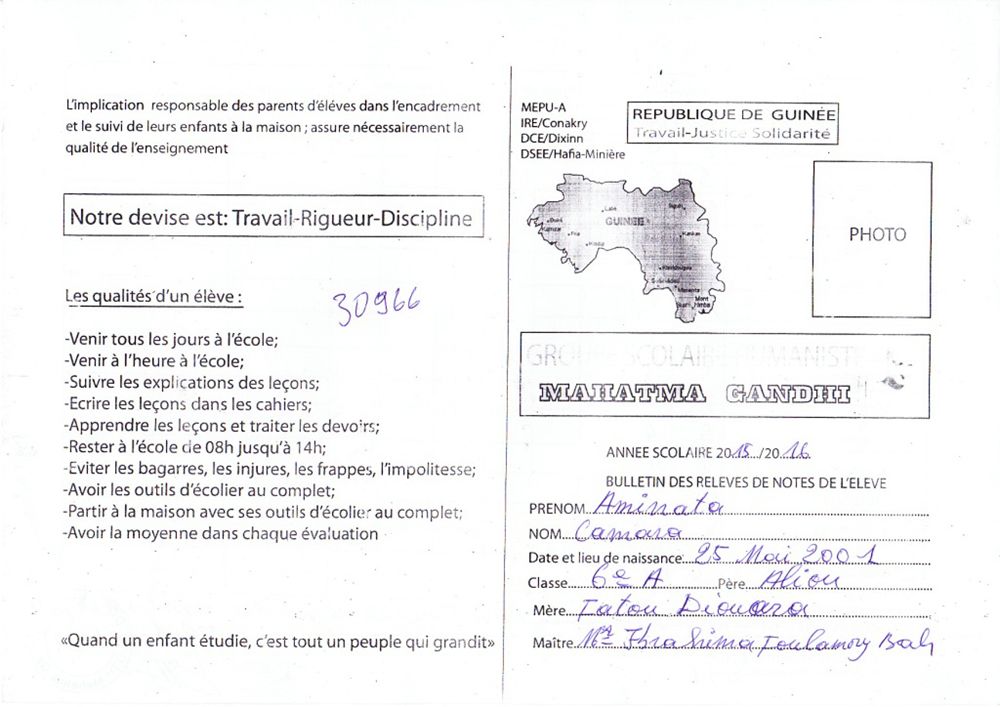 L'implication responsable des parents d'éléves dans l'encadrement
et le suivi de leurs enfants à la maison ; assure nécessairement la
qualité de l'enseignement
Notre devise est: Travail-Rigueur-Discipline
Les qualités d'un élève :
30966
-Venir tous les jours à l'école;
-Venir à l'heure à l'école;
-Suivre les explications des leçons;
-Ecrire les leçons dans les cahiers;
-Apprendre les leçons et traiter les devoirs;
-Rester à l'école de 08h jusqu'à 14h;
-Eviter les bagarres, les injures, les frappes, l'impolitesse;
-Avoir les outils d'écolier au complet;
-Partir à la maison avec ses outils d'écolier au complet;
-Avoir la moyenne dans chaque évaluation
«Quand un enfant étudie, c'est tout un peuple qui grandit»
MEPU-A
IRE/Conakry
DCE/Dixinn
DSEE/Hafia-Minière
REPUBLIQUE DE GUINÉE
Travail-Justice Solidarité
GUINEE
Kankan
PHOTO
GROUPE SCOLAIRE HUMANISTE
MAHATMA GANDHI
ANNEE SCOLAIRE 2015/2016
BULLETIN DES RELEVES DE NOTES DE L'ELEVE
PRENOM Aminata
NOM Camara
Date et lieu de naissance: 25 Mai 2001
Classe 6e A Père Aliou
Mère Fatou Diouara
Maître Mr Ibrahima Foulamory Bah